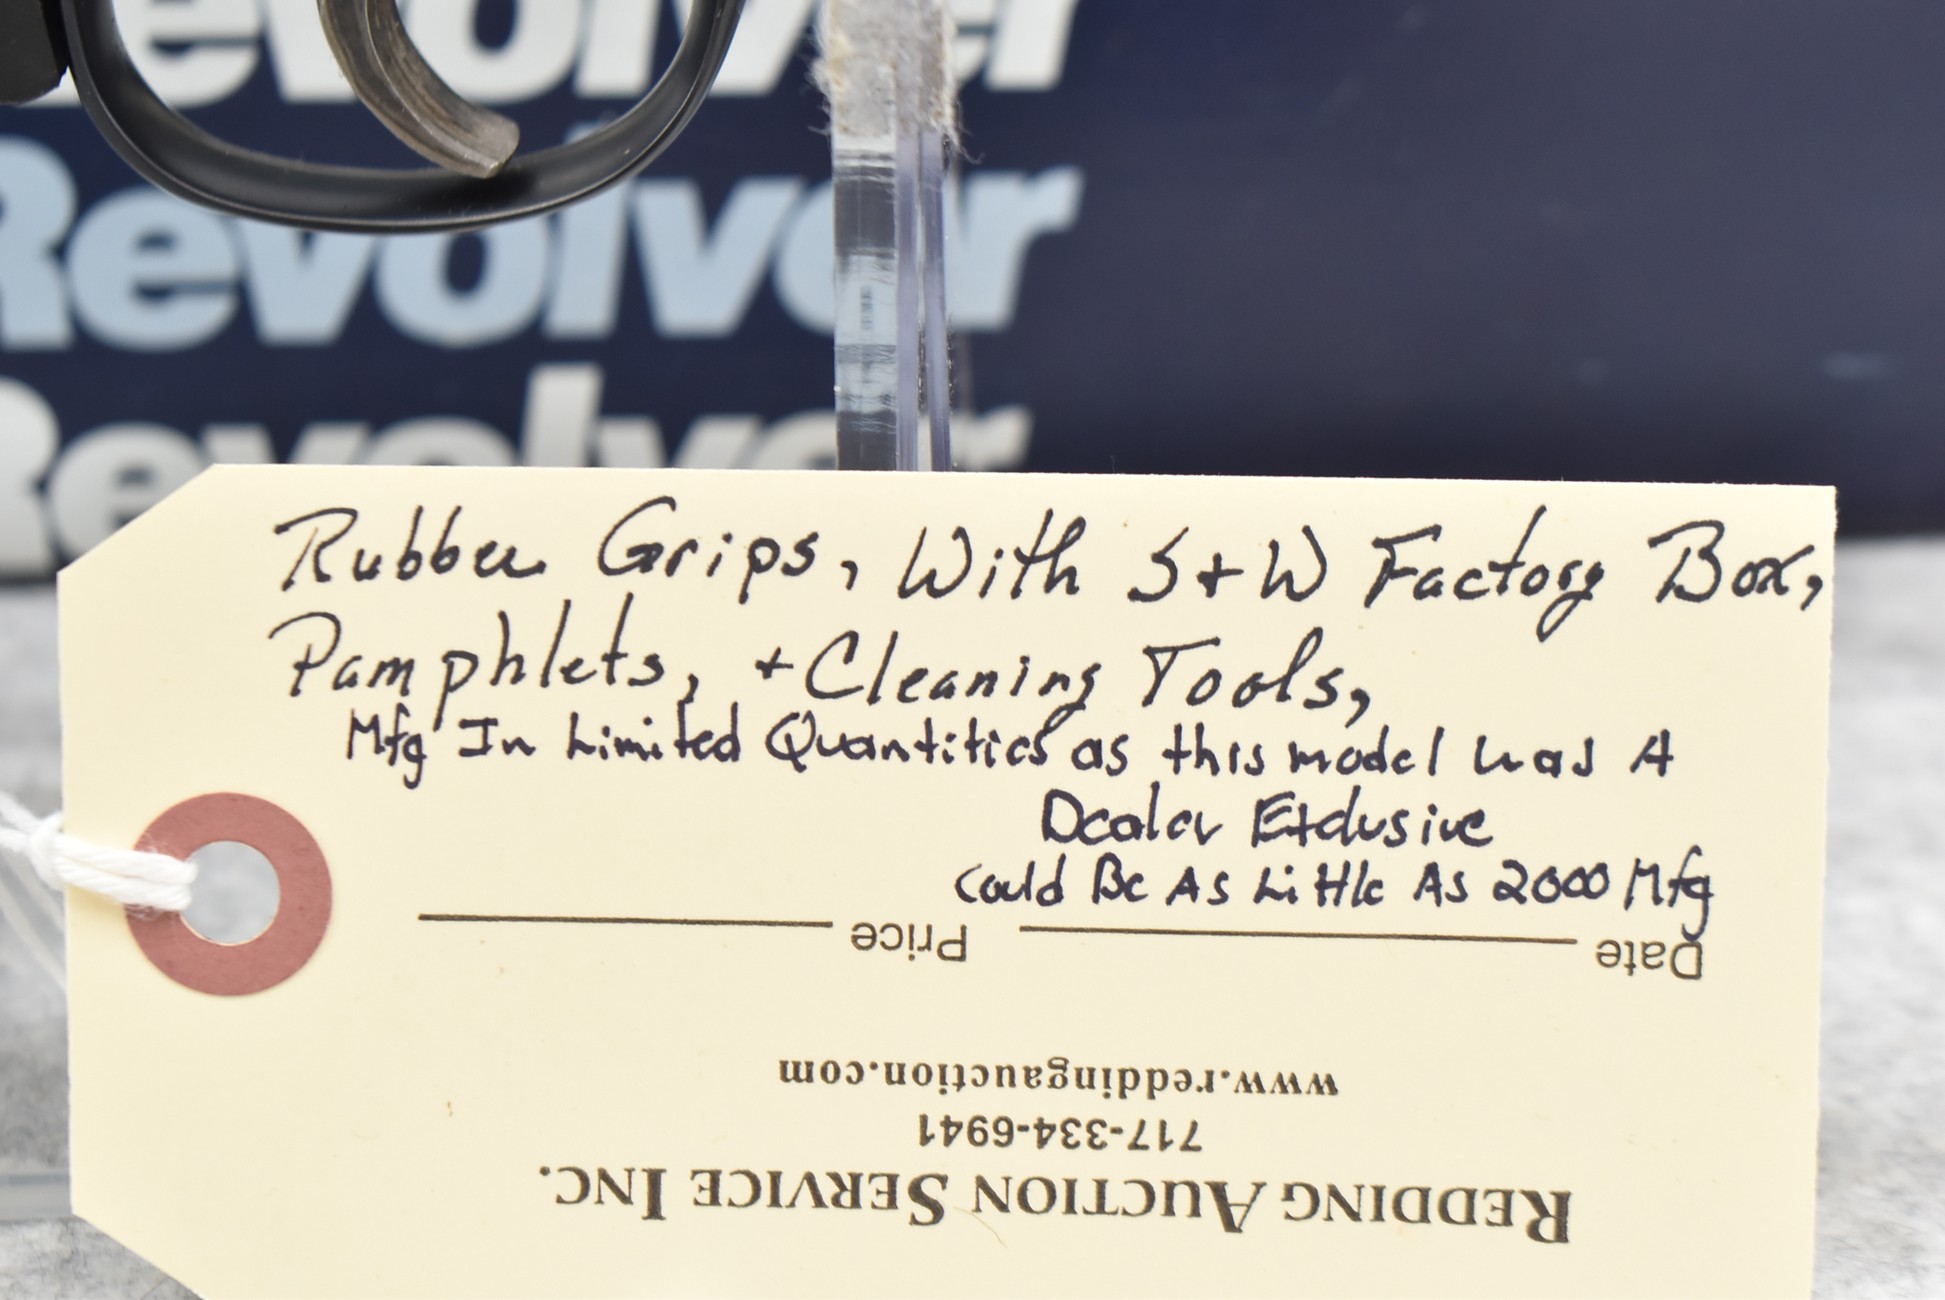 Revolver
Revolver
Revolver
Rubber Grips, With S+W Factory Box,
Pamphlets, + Cleaning Tools,
Mfg In Limited Quantities as this model was A
Dealer Exclusive
Could Be As Little As 2000 Mfg
Date Price
www.reddingauction.com
717-334-6941
REDDING AUCTION SERVICE INC.